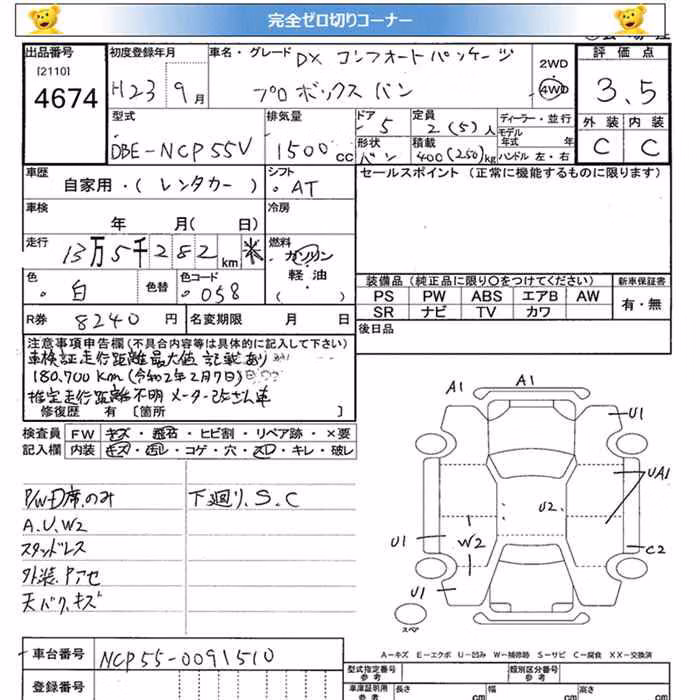 完全ゼロ切りコーナー
出品番号
[2110]
4674
初度登録年月
H23 9月
車名・グレード
DX コンフォートパッケージ
プロボックスバン
2WD
4WD
評価点
3.5
外装 内装
C C
型式
DBE-NCP55V
排気量
1500cc
ドア
・5
形状
バン
定員
2(5)人
積載
400(250)kg
ディーラー・並行
モデル年式 年
ハンドル 左・右
車歴
自家用・(レンタカー)
シフト
・AT
セールスポイント(正常に機能するものに限ります)
車検
年 月( 日)
冷房
走行
13万5千282km ※
燃料
ガソリン
軽油・
( )
色
・白
色替
色コード
・058
装備品(純正品に限り〇をつけてください)
新車保証書
PS PW ABS エアB AW
SR ナビ TV カワ
有・無
R券 8240円
名変期限 月 日
後日品
注意事項申告欄(不具合内容等は具体的に記入して下さい)
車検証走行距離最大値 記載あり
180,700Km(令和2年2月7日)
推定走行距離不明 メーター改ざん車
修復歴 有〔箇所 〕
検査員 FW キズ・飛石・ヒビ割・リペア跡・×要
記入欄 内装 キズ・汚レ・コゲ・穴・スレ・キレ・破レ
P/W・D席のみ
下廻り、S.C
A.U.W2
スタッドレス
外装、Pアセ
天バク、キズ
A1 A1 U1
UA1
U2
U1 W2
C2
U1
スペア
A-キズ E-エクボ U-凹み W-補修跡 S-サビ C-腐食 XX-交換済
車台番号 NCP55-0091510
登録番号
型式指定番号
参考
類別区分番号
参考
車庫証明用
参考
長さ cm
幅 cm
高さ cm